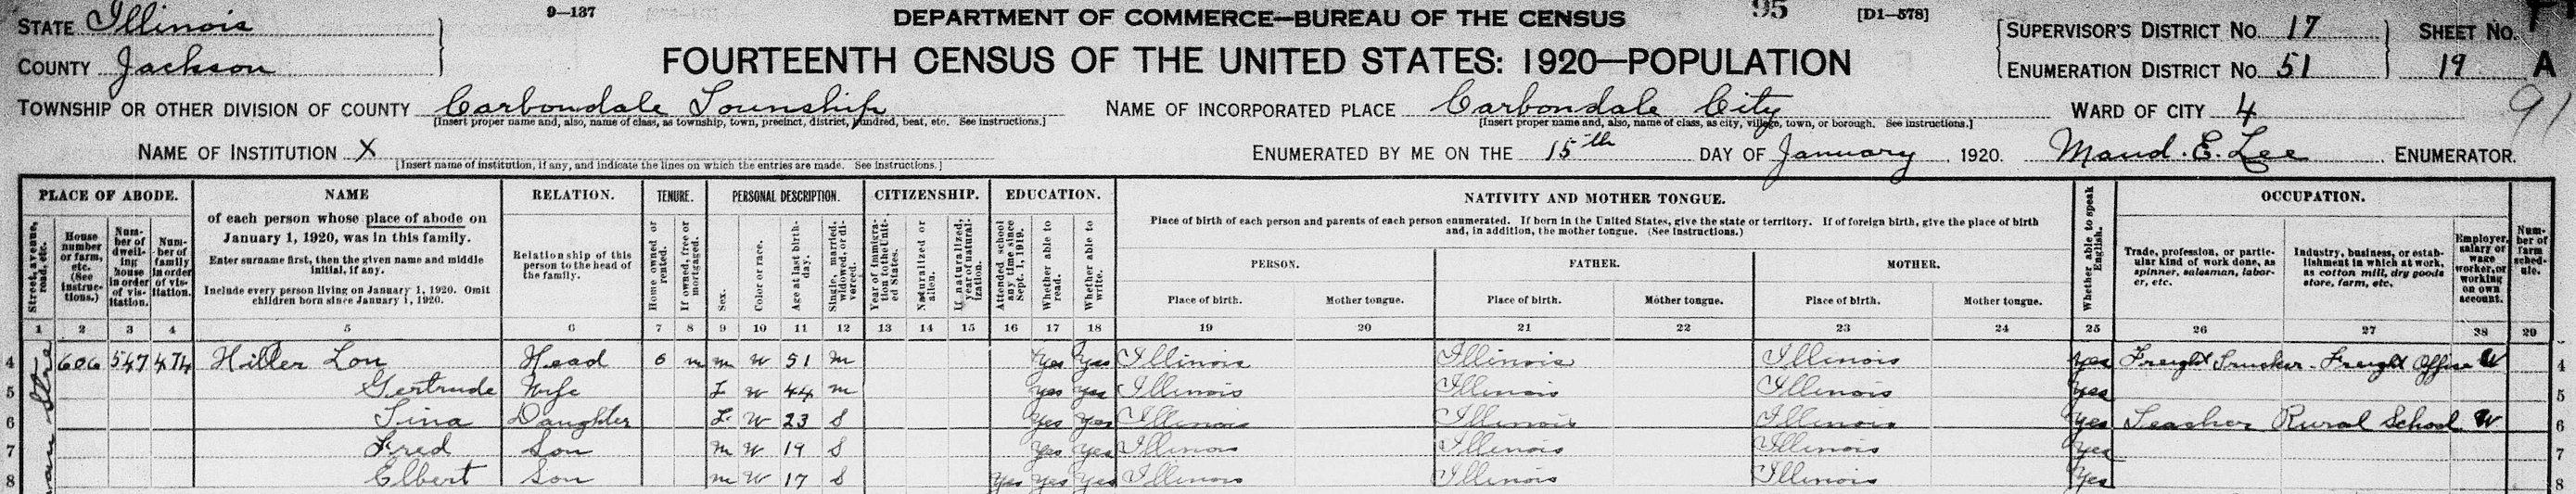 STATE Illinois
COUNTY Jackson
9-137
DEPARTMENT OF COMMERCE—BUREAU OF THE CENSUS
95
[D1-578]
FOURTEENTH CENSUS OF THE UNITED STATES: 1920—POPULATION
SUPERVISOR'S DISTRICT NO. 17
ENUMERATION DISTRICT NO. 51
SHEET NO.
19 A
91
TOWNSHIP OR OTHER DIVISION OF COUNTY Carbondale Township
[Insert proper name and, also, name of class, as township, town, precinct, district, hundred, beat, etc. See instructions.]
NAME OF INCORPORATED PLACE Carbondale City
[Insert proper name and, also, name of class, as city, village, town, or borough. See instructions.]
WARD OF CITY 4
NAME OF INSTITUTION X
[Insert name of institution, if any, and indicate the lines on which the entries are made. See instructions.]
ENUMERATED BY ME ON THE 15th DAY OF January, 1920. Maud. E. Lee ENUMERATOR.
PLACE OF ABODE.
Street, avenue, road, etc.
House number or farm, etc. (See instructions.)
Number of dwelling house in order of visitation.
Number of family in order of visitation.
NAME
of each person whose place of abode on
January 1, 1920, was in this family.
Enter surname first, then the given name and middle
initial, if any.
Include every person living on January 1, 1920. Omit
children born since January 1, 1920.
RELATION.
Relationship of this
person to the head of
the family.
TENURE.
Home owned or rented.
If owned, free or mortgaged.
PERSONAL DESCRIPTION.
Sex.
Color or race.
Age at last birthday.
Single, married, widowed, or divorced.
CITIZENSHIP.
Year of immigration to the United States.
Naturalized or alien.
If naturalized, year of naturalization.
EDUCATION.
Attended school any time since Sept. 1, 1919.
Whether able to read.
Whether able to write.
NATIVITY AND MOTHER TONGUE.
Place of birth of each person and parents of each person enumerated. If born in the United States, give the state or territory. If of foreign birth, give the place of birth
and, in addition, the mother tongue. (See instructions.)
PERSON. FATHER. MOTHER.
Place of birth. Mother tongue. Place of birth. Mother tongue. Place of birth. Mother tongue.
Whether able to speak English.
OCCUPATION.
Trade, profession, or particular kind of work done, as spinner, salesman, laborer, etc.
Industry, business, or establishment in which at work, as cotton mill, dry goods store, farm, etc.
Employer, salary or wage worker, or working on own account.
Number of farm schedule.
1 2 3 4 5 6 7 8 9 10 11 12 13 14 15 16 17 18 19 20 21 22 23 24 25 26 27 28 29
4 606 547 474 Hiller Lon Head O m m W 51 m Yes Yes Illinois Illinois Illinois Yes Freight Trucker - Freight Office W 4
5 Gertrude Wife F W 44 m Yes Yes Illinois Illinois Illinois Yes 5
6 Tina Daughter F W 23 S Yes Yes Illinois Illinois Illinois Yes Teacher Rural School W 6
7 Fred Son m W 19 S Yes Yes Illinois Illinois Illinois Yes 7
8 Elbert Son m W 17 S Yes Yes Yes Illinois Illinois Illinois Yes 8